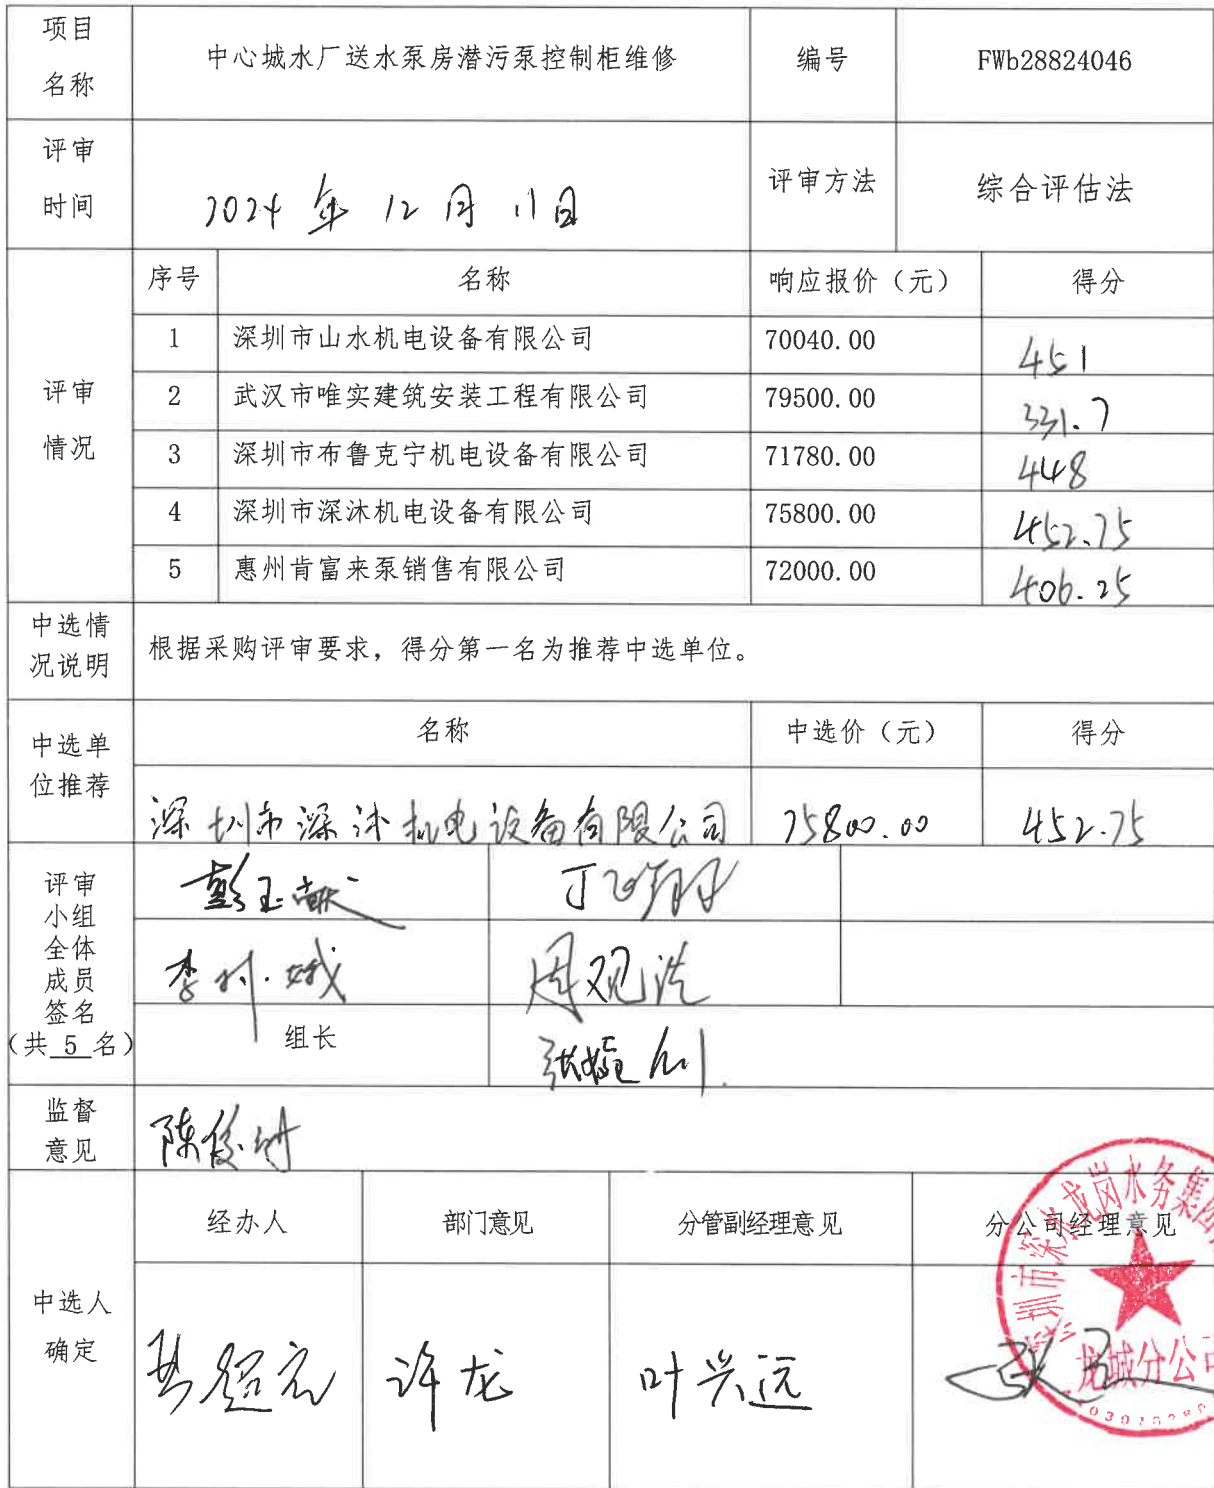 项目名称 中心城水厂送水泵房潜污泵控制柜维修 编号 FWb28824046
评审时间 2024年12月11日 评审方法 综合评估法
评审情况
序号 名称 响应报价（元） 得分
1 深圳市山水机电设备有限公司 70040.00 451
2 武汉市唯实建筑安装工程有限公司 79500.00 331.7
3 深圳市布鲁克宁机电设备有限公司 71780.00 448
4 深圳市深沐机电设备有限公司 75800.00 452.75
5 惠州肯富来泵销售有限公司 72000.00 406.25
中选情况说明 根据采购评审要求，得分第一名为推荐中选单位。
中选单位推荐
名称 中选价（元） 得分
深圳市深沐机电设备有限公司 75800.00 452.75
评审小组全体成员签名（共 5 名）
彭玉献
周观浩
组长
监督意见
中选人确定
经办人 部门意见 分管副经理意见 分公司经理意见
许龙 叶兴远
深圳市深水龙岗水务集团
龙城分公司